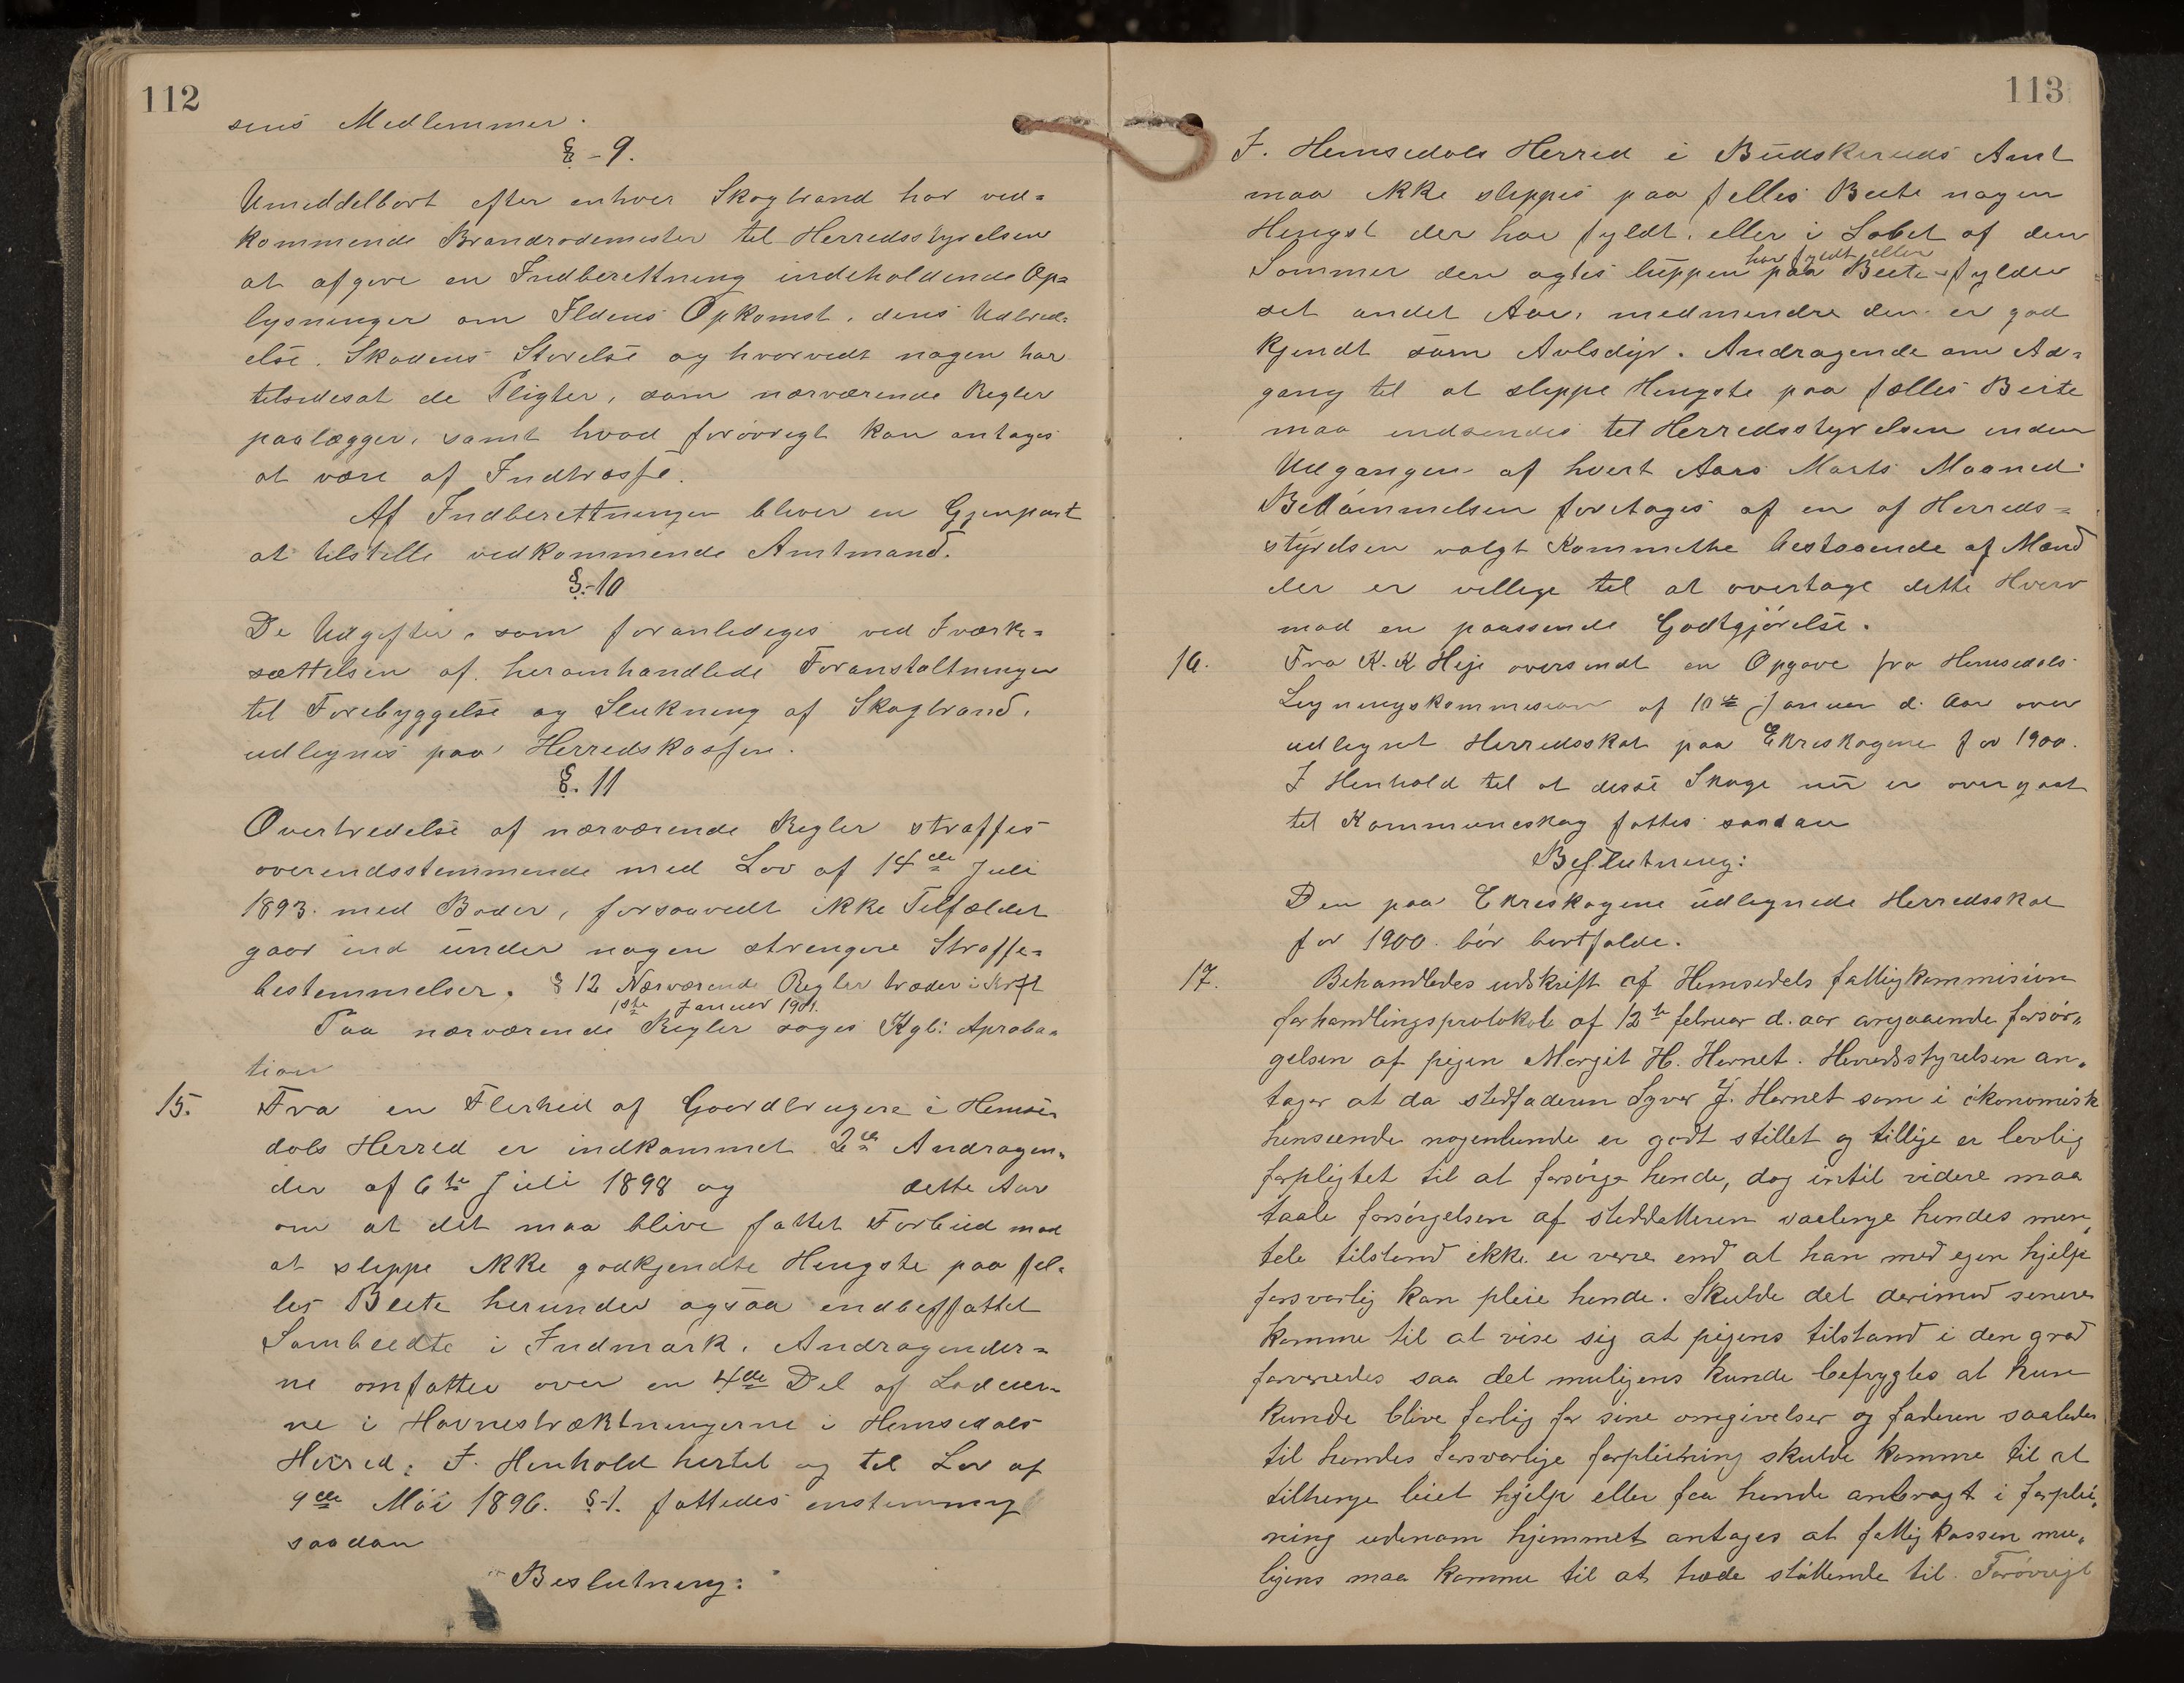 112
sens Medlemmer.
§-9.
Umiddelbart efter enhver Skogbrand har ved=
kommende Brandrodemester til Herredsstyrelsen
at afgive en Indberettning indeholdende Op=
lysninger om Ildens Opkomst, dens Udbred=
else, Skadens Störelse og hvorvidt nogen har
tilsidesat de Pligter, som nærværende Regler
paalægger, samt hvad forövrigt kan antages
at være af Indtræsse.
Af Indberettningen bliver en Gjenpart
at tilstille vedkommende Amtmand.
§-10
De Udgifter, som foranlediges ved Iværk=
sættelsen af heromhandlede Foranstaltninger
til Forebyggelse og Slukning af Skogbrand,
udlignes paa Herredskassen.
§. 11
Overtredelse af nærværende Regler straffes
overendsstemmende med Lov af 14de Juli
1893. med Böder, forsaavidt ikke Tilfældet
gaar ind under nogen strengere Straffe=
bestemmelser. § 12 Nærværende Regler træder i Krft
1ste Januar 1901.
Paa nærværende Regler söges Kgl: Aproba=
tion
15. Fra en Flerhed af Gaardbrugere i Hemse=
dals Herred er indkommet 2de Andragen=
der af 6te Juli 1898 og dette Aar
om at det maa blive fattet Forbud mod
at sleppe ikke godkjendte Hengste paa fel=
les Beite herunder ogsaa indbefattet
Sambeedte i Indmark. Andragender=
ne omfatter over en 4de Del af
ne i Havnestræktningerne i Hemsedals
Herred. I. Henhold hertil og til Lov af
9de Mai 1896. §-1. fattedes enstemmig
saadan
Beslutning:
113
I. Hemsedals Herred i Buskeruds Amt
maa ikke sleppes paa felles Beite nogen
Hengst der har fyldt, eller i Löbet af den
har fyldt eller
Sommer den agtes luppen paa Beite fylder
sit andet Aar, medmindre den er god
kjendt som Avlsdyr. Andragende om Ad=
gang til at sleppe Hengste paa fælles Beite
maa indsendes til Herredsstyrelsen inden
Udgangen af hvert Aars Marts Maaned.
Bedömmelsen foretages af en af Herreds=
styrelsen valgt Kommithe bestaaende af Mænd
der er villige til at overtage dette Hverv
mod en paassende Godtgjörelse.
16. Fra K. K Heje oversendt en Opgave fra Hemsedals
Ligningskommission af 10de Januar d. Aar over
udlignet Herredsskat paa Ekreskogene for 1900.
I Henhold til at disse Skoge nu er overgaat
til Kommuneskog fattes saadan
Beslutning:
Den paa Ekreskogene udlignede Herredsskat
for 1900. bör bortfalde.
17. Behandledes udskrift af Hemsedals fattigkommision
forhandlingsprotokol af 12te februar d. aar angaaende forsör=
gelsen af pigen Margit H. Hernet. Herredsstyrelsen an=
tager at da stedfaderen Syver J. Hernet som i ökonomisk
henseende nogenlunde er godt stillet og tillige er lovlig
forpligtet til at forsörge hende, dog intil videre maa
taale forsörgelsen af steddatteren saalenge hendes men=
tele tilstand ikke er verre end at han med egen hjelp
forsvarlig kan pleie hende. Skulde det derimod senere
komme til at vise sig at pigens tilstand i den grad
forverredes saa det muligens kunde befrygtes at hun
kunde blive farlig for sine omgivelser og faderen saaledes
til hendes forsvarlige forpleining skulde komme til at
tiltrenge leiet hjelp eller faa hende anbragt i forplei=
ning udenom hjemmet antages at fattigkassen mu=
ligens maa komme til at træde stöttende til. Forövrigt